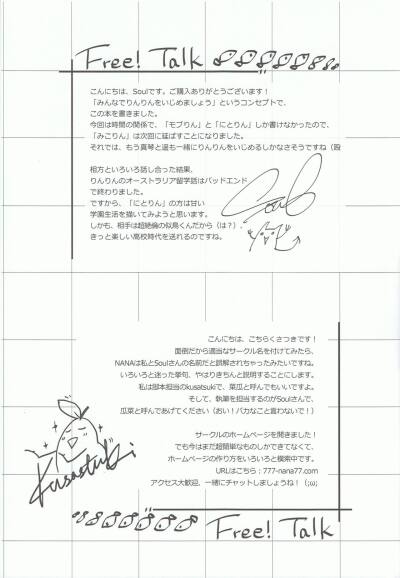 Free! Talk
こんにちは、Soulです。ご購入ありがとうございます！
「みんなでりんりんをいじめましょう」というコンセプトで、
この本を書きました。
今回は時間の関係で、「モブりん」と「にとりん」しか書けなかったので、
「みこりん」は次回に延ばすことになりました。
それでは、もう真琴と遥も一緒にりんりんをいじめるしかなさそうですね（殴
相方といろいろ話し合った結果、
りんりんのオーストラリア留学話はバッドエンド
で終わりました。
ですから、「にとりん」の方は甘い
学園生活を描いてみようと思います。
しかも、相手は超絶倫の似鳥くんだから（は？）、
きっと楽しい高校時代を送れるのですね。
Soul
こんにちは、こちらくさつきです！
面倒だから適当なサークル名を付けてみたら、
NANAは私とSoulさんの名前だと誤解されちゃったみたいですね。
いろいろと迷った挙句、やはりきちんと説明することにします。
私は脚本担当のkusatsukiで、菜瓜と呼んでもいいですよ。
そして、執筆を担当するのがSoulさんで、
瓜菜と呼んであげてください（おい！バカなこと言わないで！）
サークルのホームページを開きました！
でも今はまだ超簡単なものしかできてなくて、
ホームページの作り方をいろいろと模索中です。
URLはこちら：777-nana77.com
アクセス大歓迎、一緒にチャットしましょうね！（;ω;）
Kusatsuki
Free! Talk